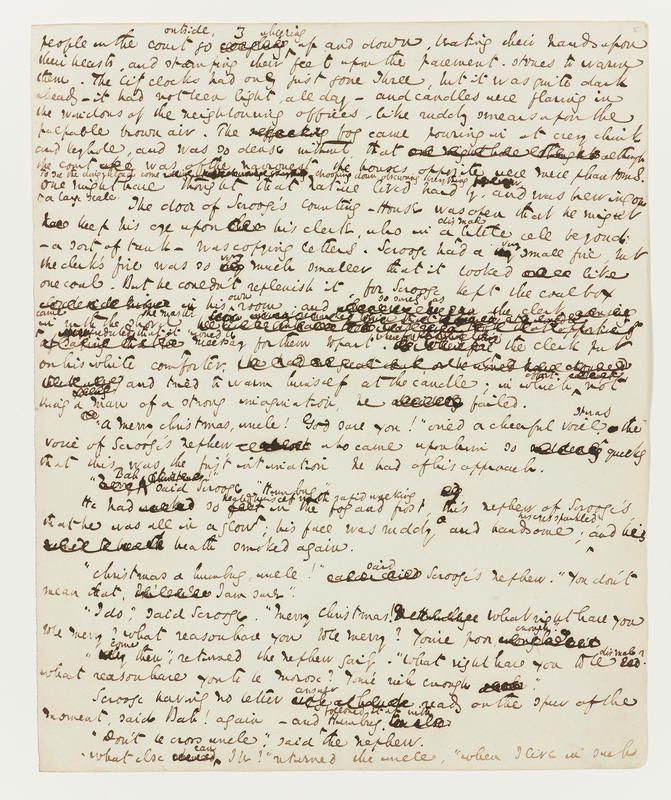 people in the court go outside, wheezing up and down, beating their hands upon
their breasts, and stamping their feet upon the pavement-stones to warm
them. The City clocks had only just gone three, but it was quite dark
already - it had not been light, all day - and candles were flaring in
the windows of the neighbouring offices, like ruddy smears upon the
palpable brown air. The fog came pouring in at every chink
and keyhole, and was so dense without, that although
the court was of the narrowest, the houses opposite were mere phantoms.
To see the dingy cloud come drooping down, obscuring everything,
one might have thought that nature lived hard by, and was brewing on
a large scale.
The door of Scrooge's counting-House was open that he might
keep his eye upon his clerk, who in a dismal little cell beyond
- a sort of tank - was copying letters. Scrooge had a very small fire, but
the clerk's fire was so very much smaller that it looked like
one coal. But he couldn't replenish it, for Scrooge kept the coal box
in his own room; and so surely as the clerk
came in with the shovel the master
necessary for them to part. Wherefore the clerk put
on his white comforter, and tried to warm himself at the candle; in which effort, not
being a man of a strong imagination, he failed.
"a merry christmas, uncle! God save you!" cried a cheerful voice. It was the
voice of Scrooge's nephew who came upon him so quickly
that this was the first intimation he had of his approach.
"Bah!" said Scrooge "Humbug"
He had so heated himself with rapid walking in the fog and frost, this nephew of Scrooge's,
that he was all in a glow; his face was ruddy and handsome; his eyes sparkled, and his
breath smoked again.
"christmas a humbug, uncle!" said Scrooge's nephew. "You don't
mean that, I am sure?"
"I do," said Scrooge. "Merry christmas! what right have you
to be merry? what reason have you to be merry? You're poor enough."
"Come then," returned the nephew gaily. "What right have you to be dismal?
what reason have you to be morose? You're rich enough."
Scrooge having no better answer ready on the spur of the
moment, said Bah! again - and followed it up with Humbug.
"Don't be cross uncle," said the nephew.
"what else can I be?" returned the uncle, "when I live in such